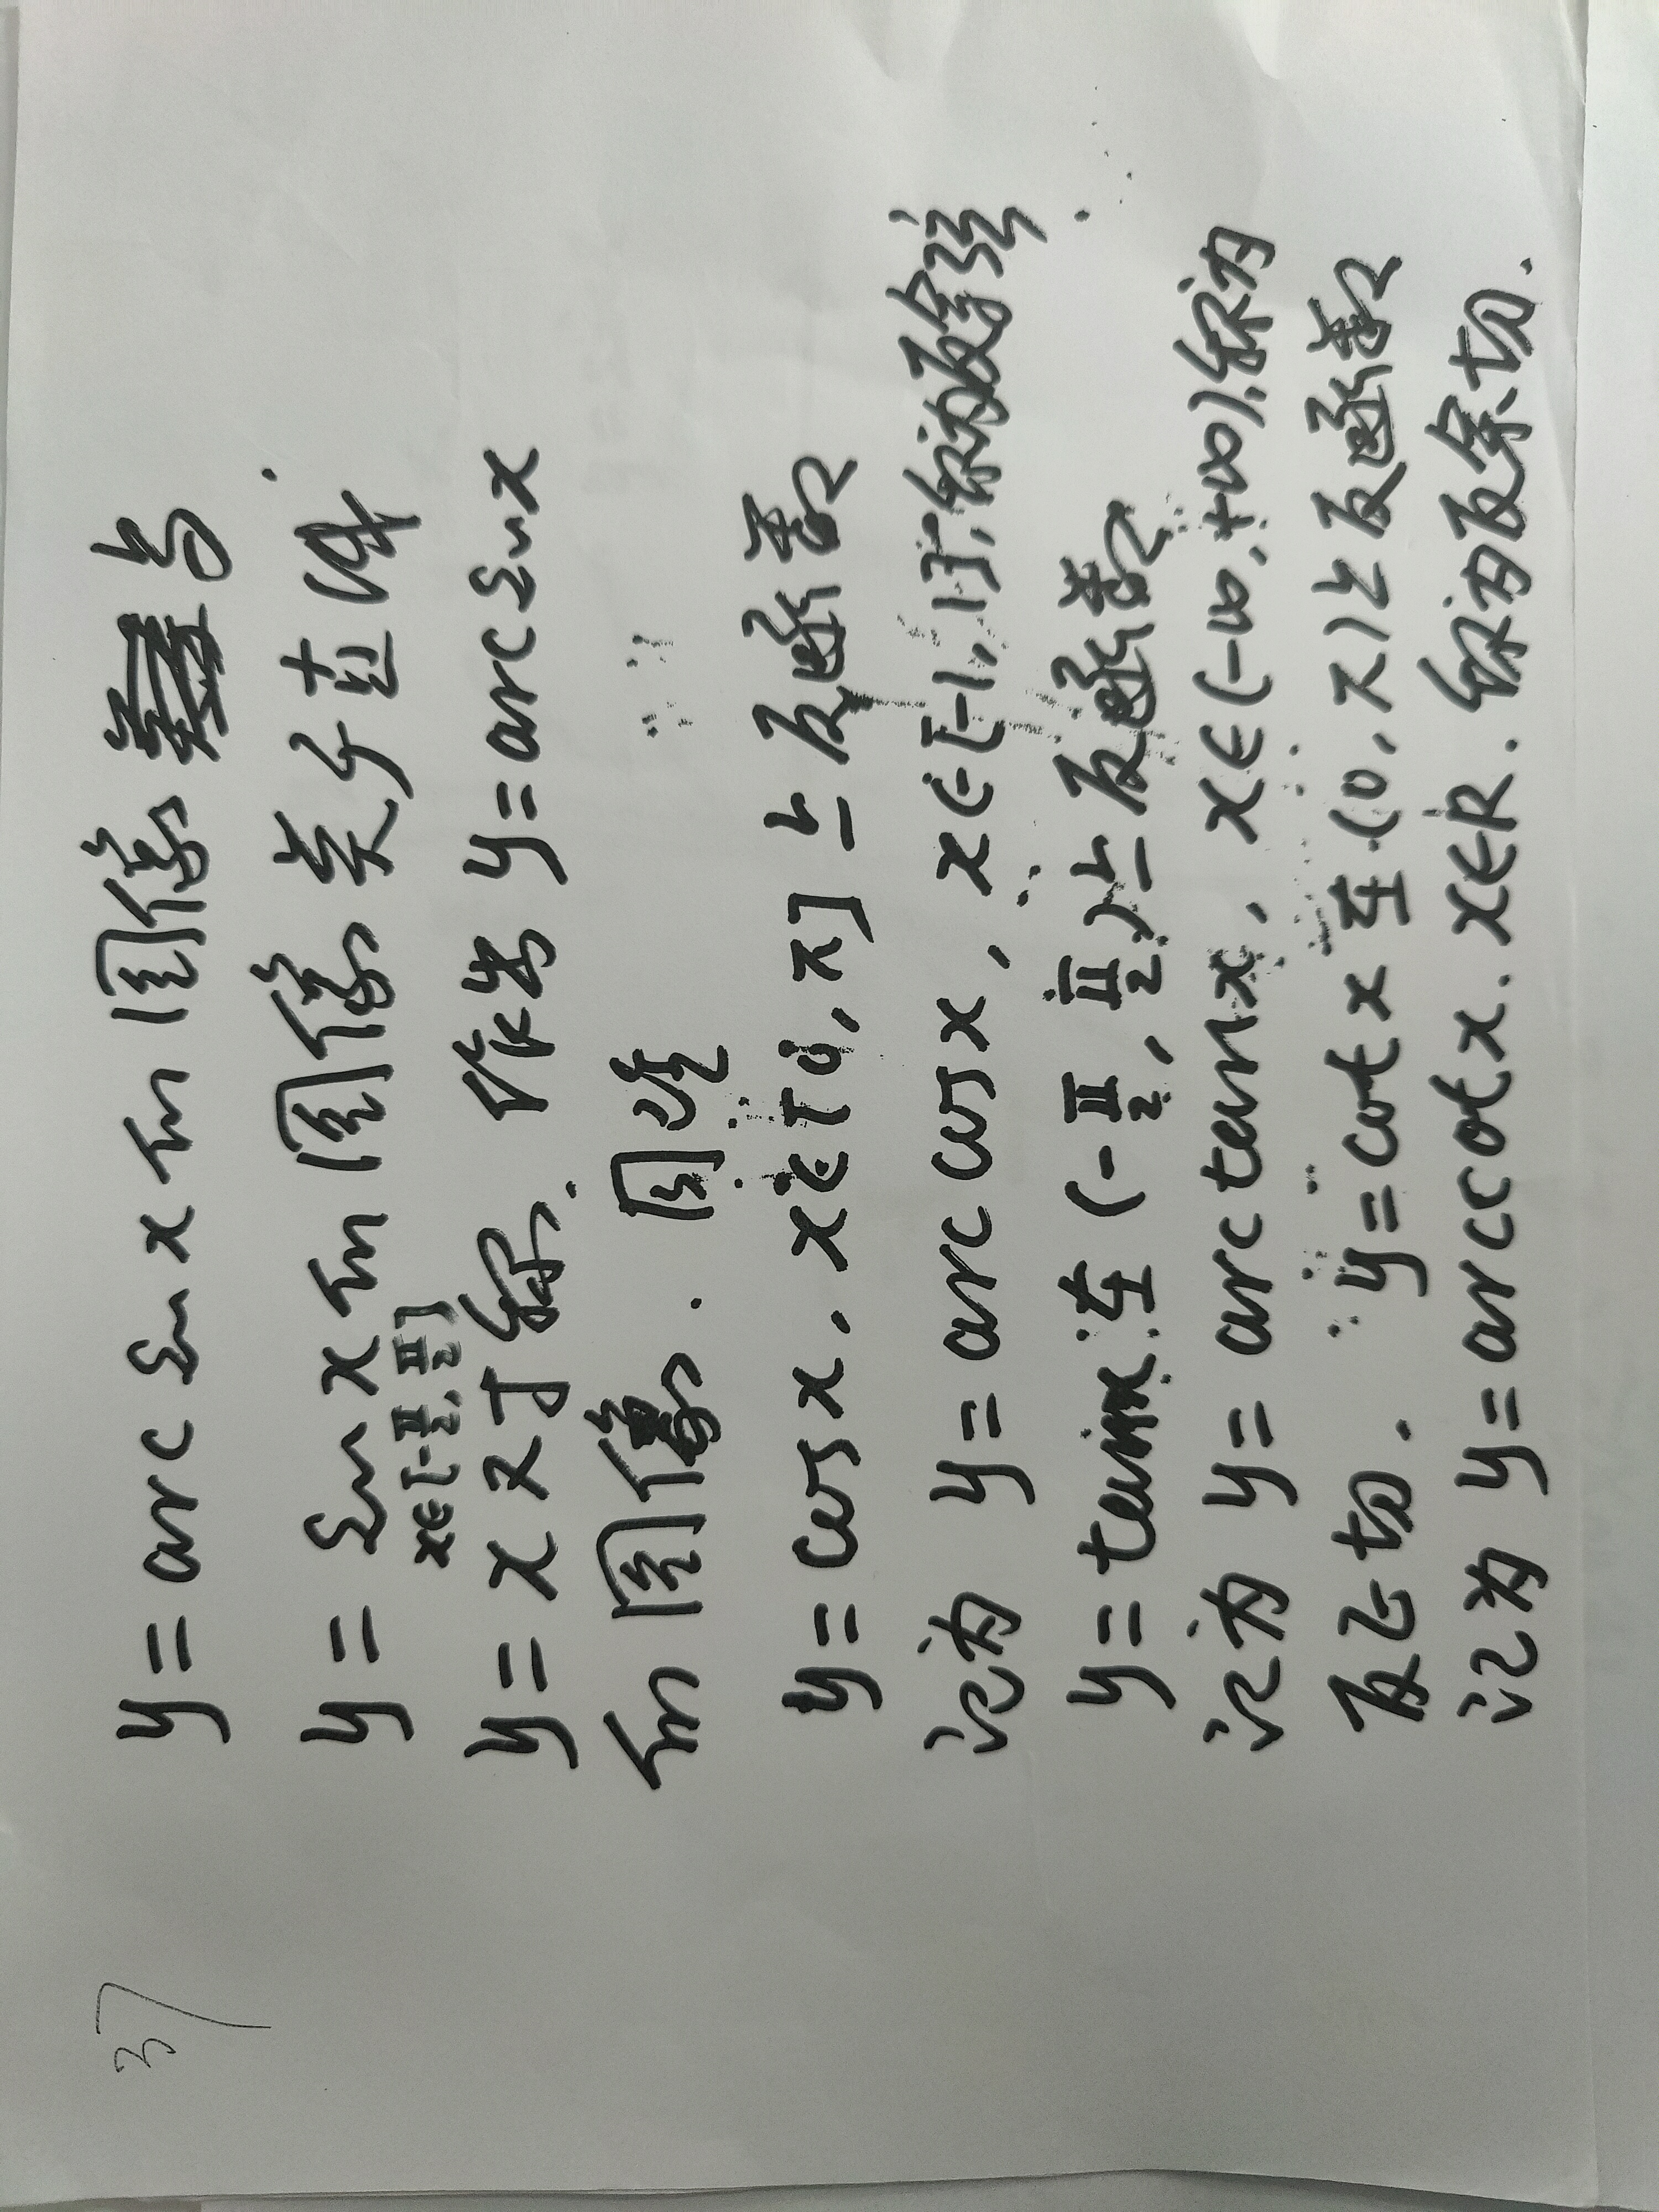 37
y = arc sin x 的图像与
y = sin x 的图像关于直线
x∈[-π/2, π/2]
y = x 对称. 作出 y = arc sin x
的图像. 同理
y = cos x, x∈[0, π] 上反函数
记为 y = arc cos x, x∈[-1, 1], 称为反余弦.
y = tan x 在 (-π/2, π/2) 上反函数
记为 y = arc tan x, x∈(-∞, +∞), 称为
反正切. y = cot x 在 (0, π) 上反函数
记为 y = arc cot x. x∈R. 称为反余切.